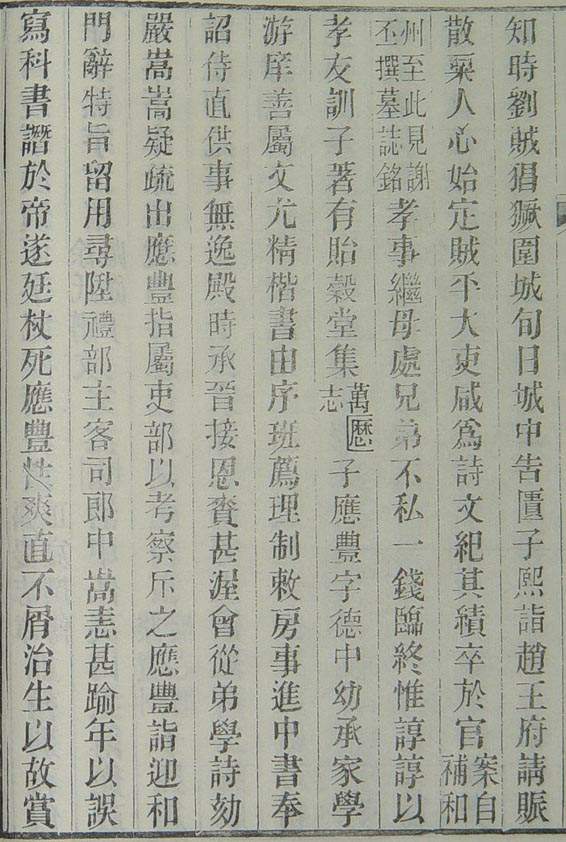 知時劉賊猖獗圍城旬日城中告匱子熙詣趙王府請賑
散粟人心始定賊平大吏咸爲詩文紀其績卒於官案自補和
州至此見謝丕撰墓誌銘孝事繼母處兄弟不私一錢臨終惟諄諄以
孝友訓子著有貽穀堂集萬歷志子應豐字德中幼承家學
游庠善屬文尤精楷書由序班薦理制敕房事進中書奉
詔侍直供事無逸殿時承晉接恩賚甚渥會從弟學詩劾
嚴嵩嵩疑疏出應豐指屬吏部以考察斥之應豐詣迎和
門辭特旨留用尋陞禮部主客司郎中嵩恚甚踰年以誤
寫科書譖於帝遂廷杖死應豐性爽直不屑治生以故賞